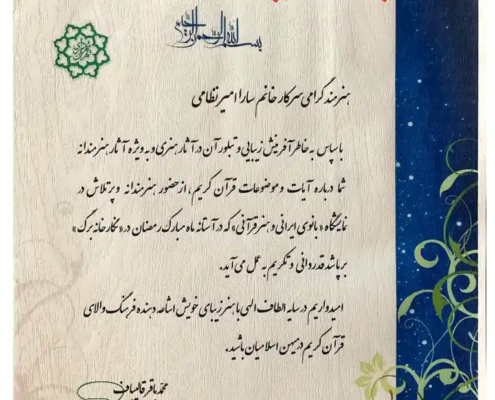 بسم الله الرحمن الرحیم
هنرمند گرامی سرکار خانم سارا امیرنظامی
با سپاس به خاطر آفرینش زیبایی و تبلور آن در آثار هنری و به ویژه آثار هنرمندانه
شما درباره آیات و موضوعات قرآن کریم، از حضور هنرمندانه و پرتلاش در
نمایشگاه «بانوی ایرانی و هنر قرآنی» که در آستانه ماه مبارک رمضان در «نگارخانه برگ»
برپا شد قدردانی و تکریم به عمل می‌آید.
امیدواریم در سایه الطاف الهی با هنر زیبای خویش اشاعه دهنده فرهنگ والای
قرآن کریم در میهن اسلامیمان باشید.
محمدباقر قالیباف